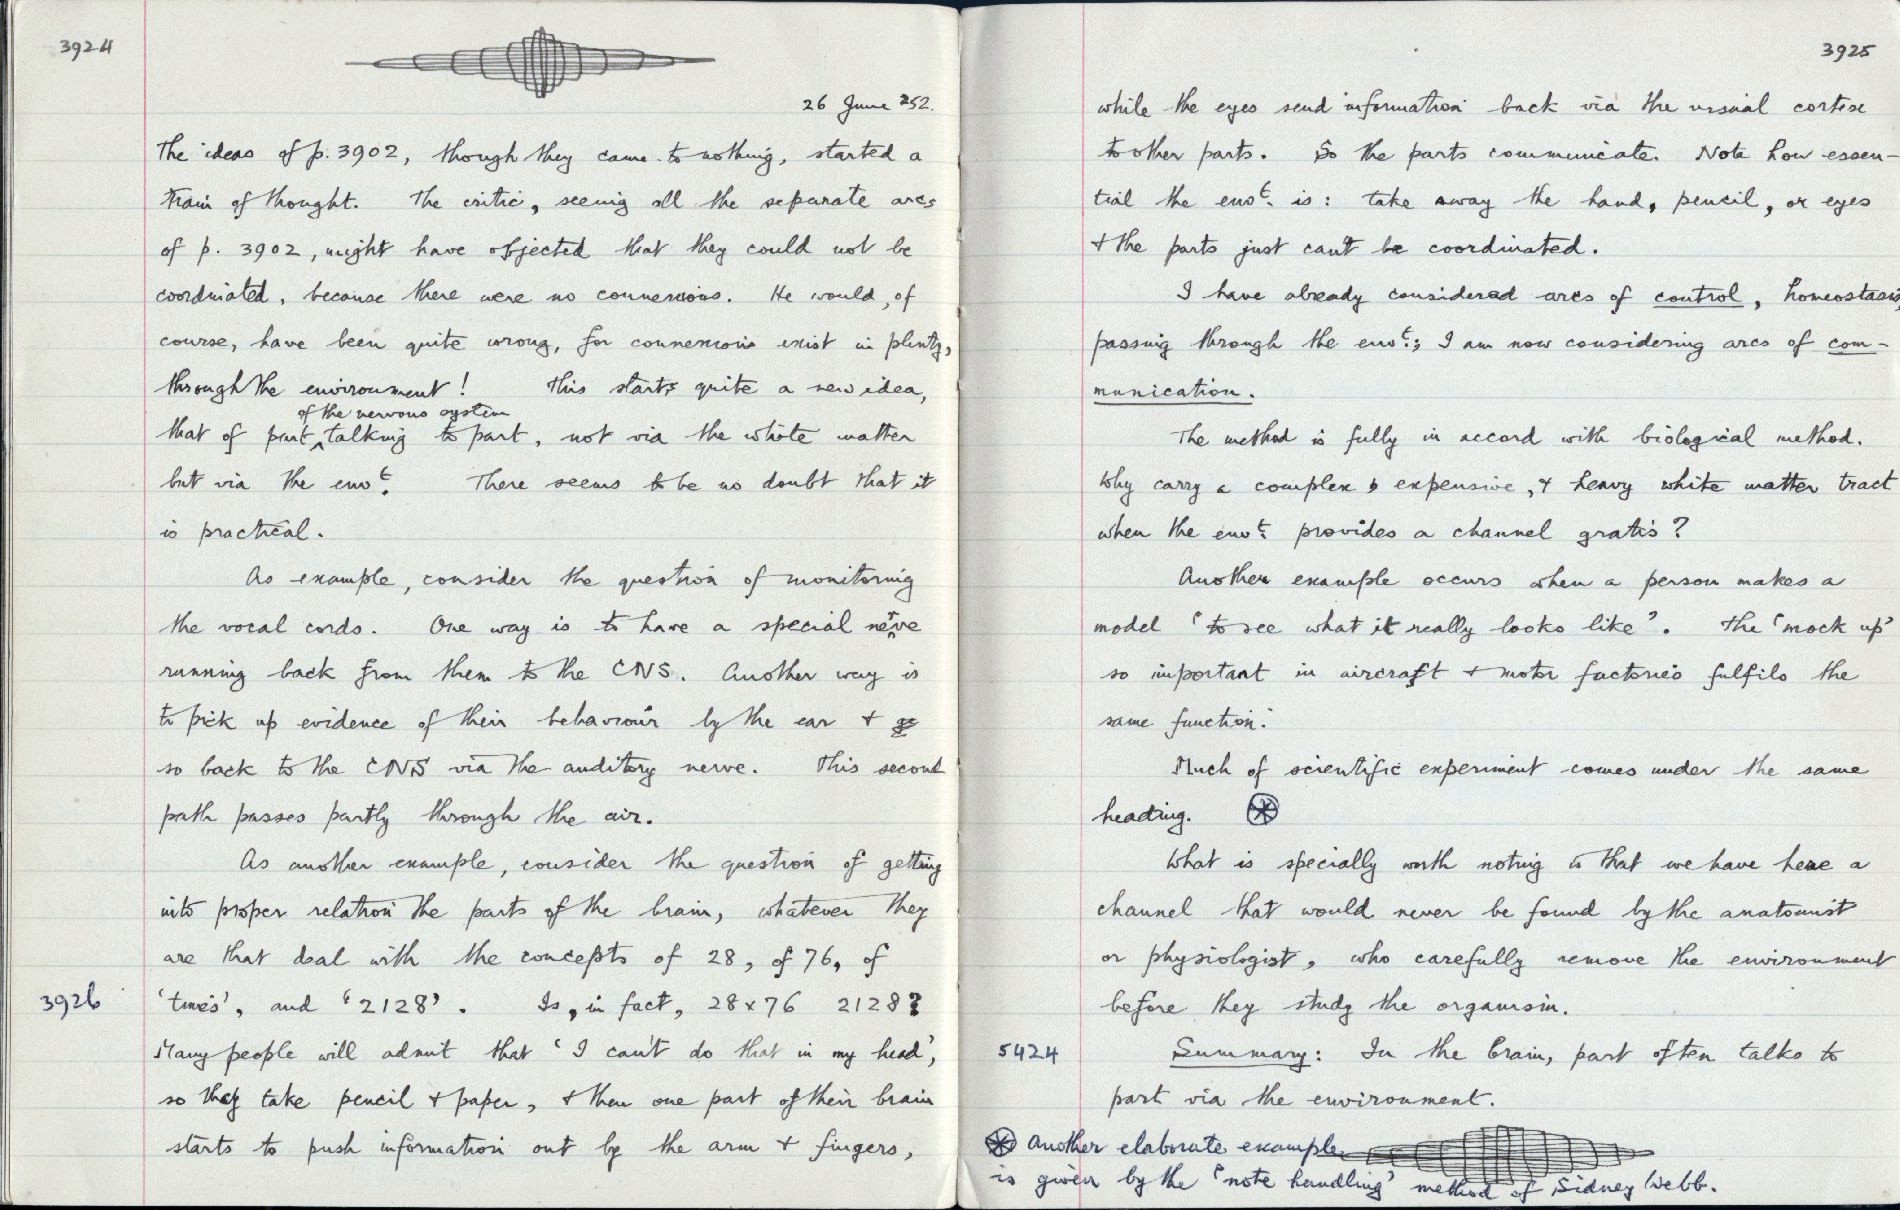 3924
26 June '52.
The ideas of p. 3902, though they came to nothing, started a
train of thought. The critic, seeing all the separate arcs
of p. 3902, might have objected that they could not be
coordinated, because there were no connexions. He would, of
course, have been quite wrong, for connexions exist in plenty,
through the environment! This starts quite a new idea,
of the nervous system
that of part ‸ talking to part, not via the white matter
but via the envt. There seems to be no doubt that it
is practical.
As example, consider the question of monitoring
the vocal cords. One way is to have a special nerve
running back from them to the CNS. Another way is
to pick up evidence of their behaviour by the ear + go
so back to the CNS via the auditory nerve. This second
path passes partly through the air.
As another example, consider the question of getting
into proper relation the parts of the brain, whatever they
are that deal with the concepts of 28, of 76, of
3926
'times', and '2128'. Is, in fact, 28 x 76 2128?
Many people will admit that 'I can't do that in my head',
so they take pencil + paper, + then one part of their brain
starts to push information out by the arm + fingers,
3925
while the eyes send information back via the visual cortex
to other parts. So the parts communicate. Note how essen-
tial the envt. is: take away the hand, pencil, or eyes
+ the parts just can't be coordinated.
I have already considered arcs of control, homeostasis,
passing through the envt.; I am now considering arcs of com-
munication.
The method is fully in accord with biological method.
Why carry a complex, expensive, + heavy white matter tract
when the envt. provides a channel gratis?
Another example occurs when a person makes a
model 'to see what it really looks like'. The 'mock up'
so important in aircraft + motor factories fulfils the
same function.
Much of scientific experiment comes under the same
heading. ⊛
What is specially worth noting is that we have here a
channel that would never be found by the anatomist
or physiologist, who carefully remove the environment
before they study the organism.
5424
Summary: In the brain, part often talks to
part via the environment.
⊛ Another elaborate example
is given by the 'note handling' method of Sidney Webb.